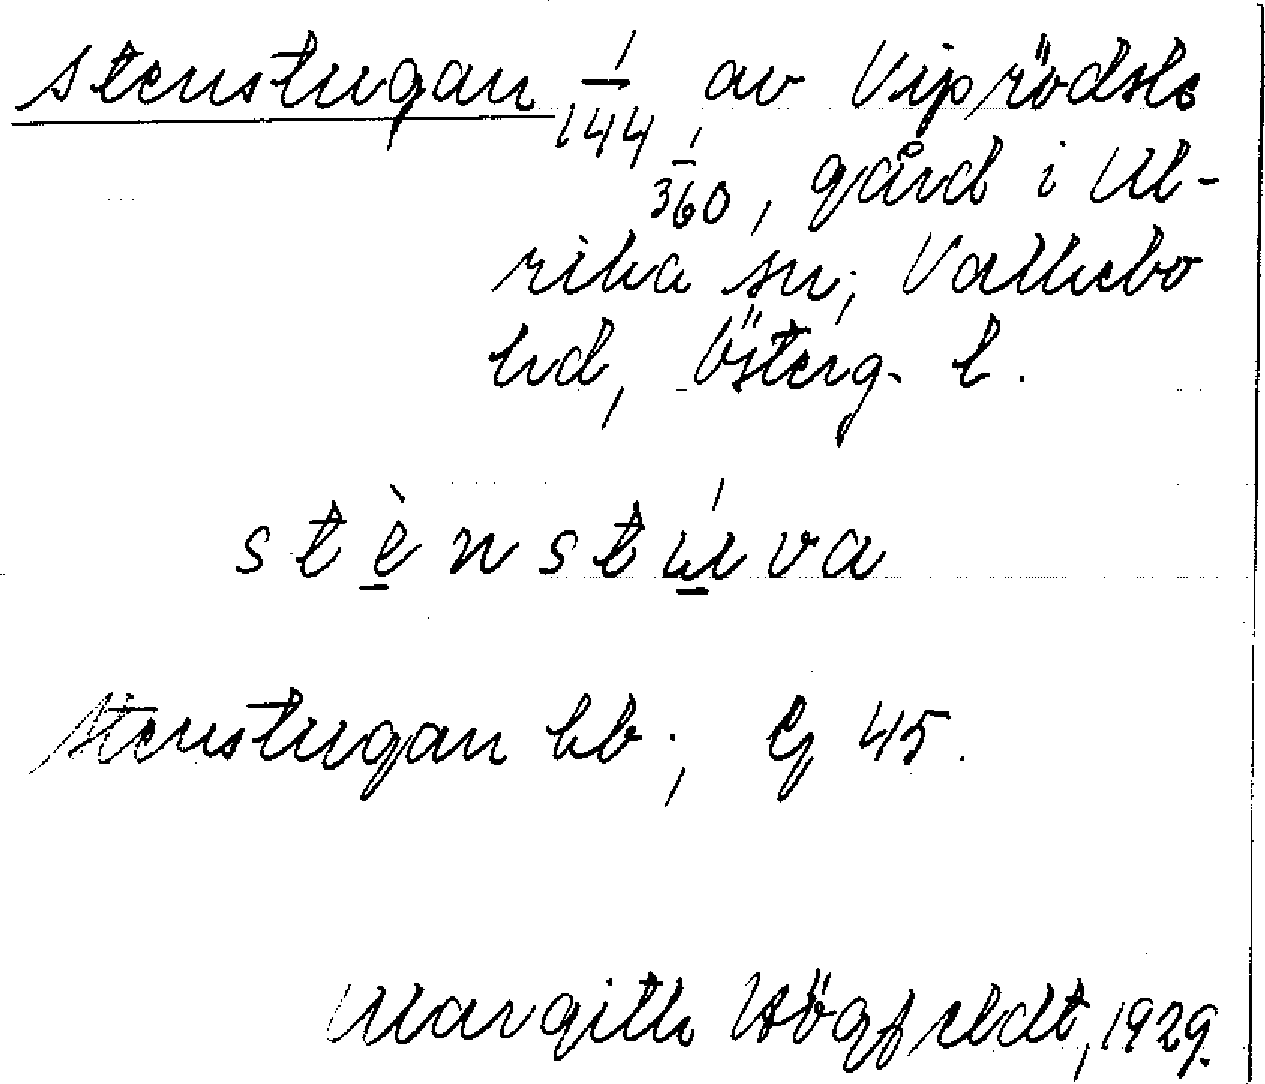 Stenstugan 1/144 av Viprödsle
1/360, gård i Ul-
rika sn; Vallebo
hd, Österg. l.
stènstúva
Stenstugan bb; Eg 45.
Margith Högfeldt, 1929.